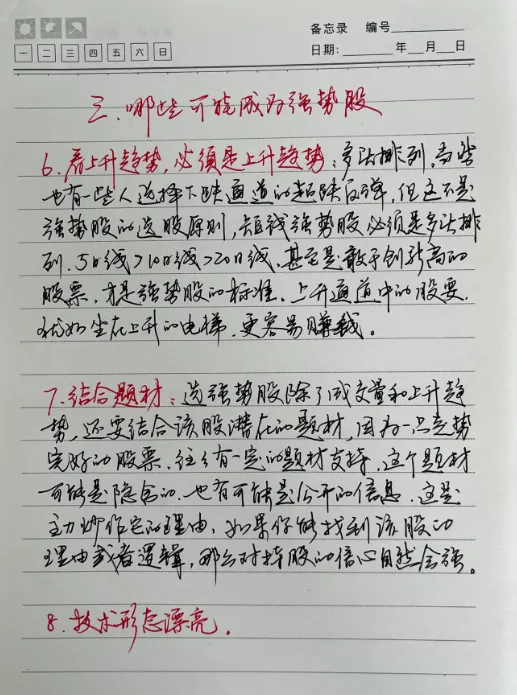 备忘录 编号
一 二 三 四 五 六 日
日期: 年 月 日
三、哪些可能成为强势股
6.看上升趋势,必须是上升趋势:多头排列,当然
也有些人选择下跌通道的超跌反弹,但这不是
强势股的选股原则,短线强势股必须是多头排
列.5日线>10日线>20日线.甚至是敢于创新高的
股票,才是强势股的标准.上升通道中的股票,
就如坐在上升的电梯.更容易赚钱。
7.结合题材:选强势股除了成交量和上升趋
势,还要结合该股潜在的题材,因为一只走势
完好的股票.往往有一定的题材支持,这个题材
可能是隐含的.也有可能是公开的信息.这是
主力炒作它的理由,如果你能找到该股的
理由或者逻辑,那么对持股的信心自然会强。
8.技术形态漂亮.